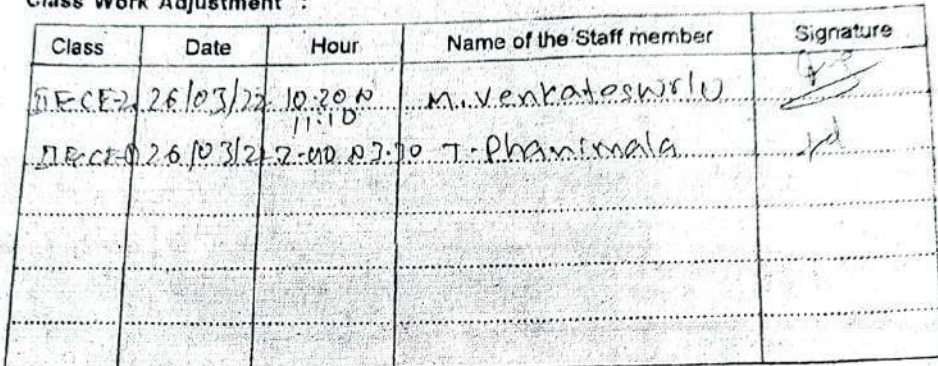 Class Work Adjustment :
Class Date Hour Name of the Staff member Signature
IIECE-2 26/03/22 10.20 to M. Venkateswrlu
11:10
IIECE- 26/03/22 2-40 to 3.30 T. Phanimala